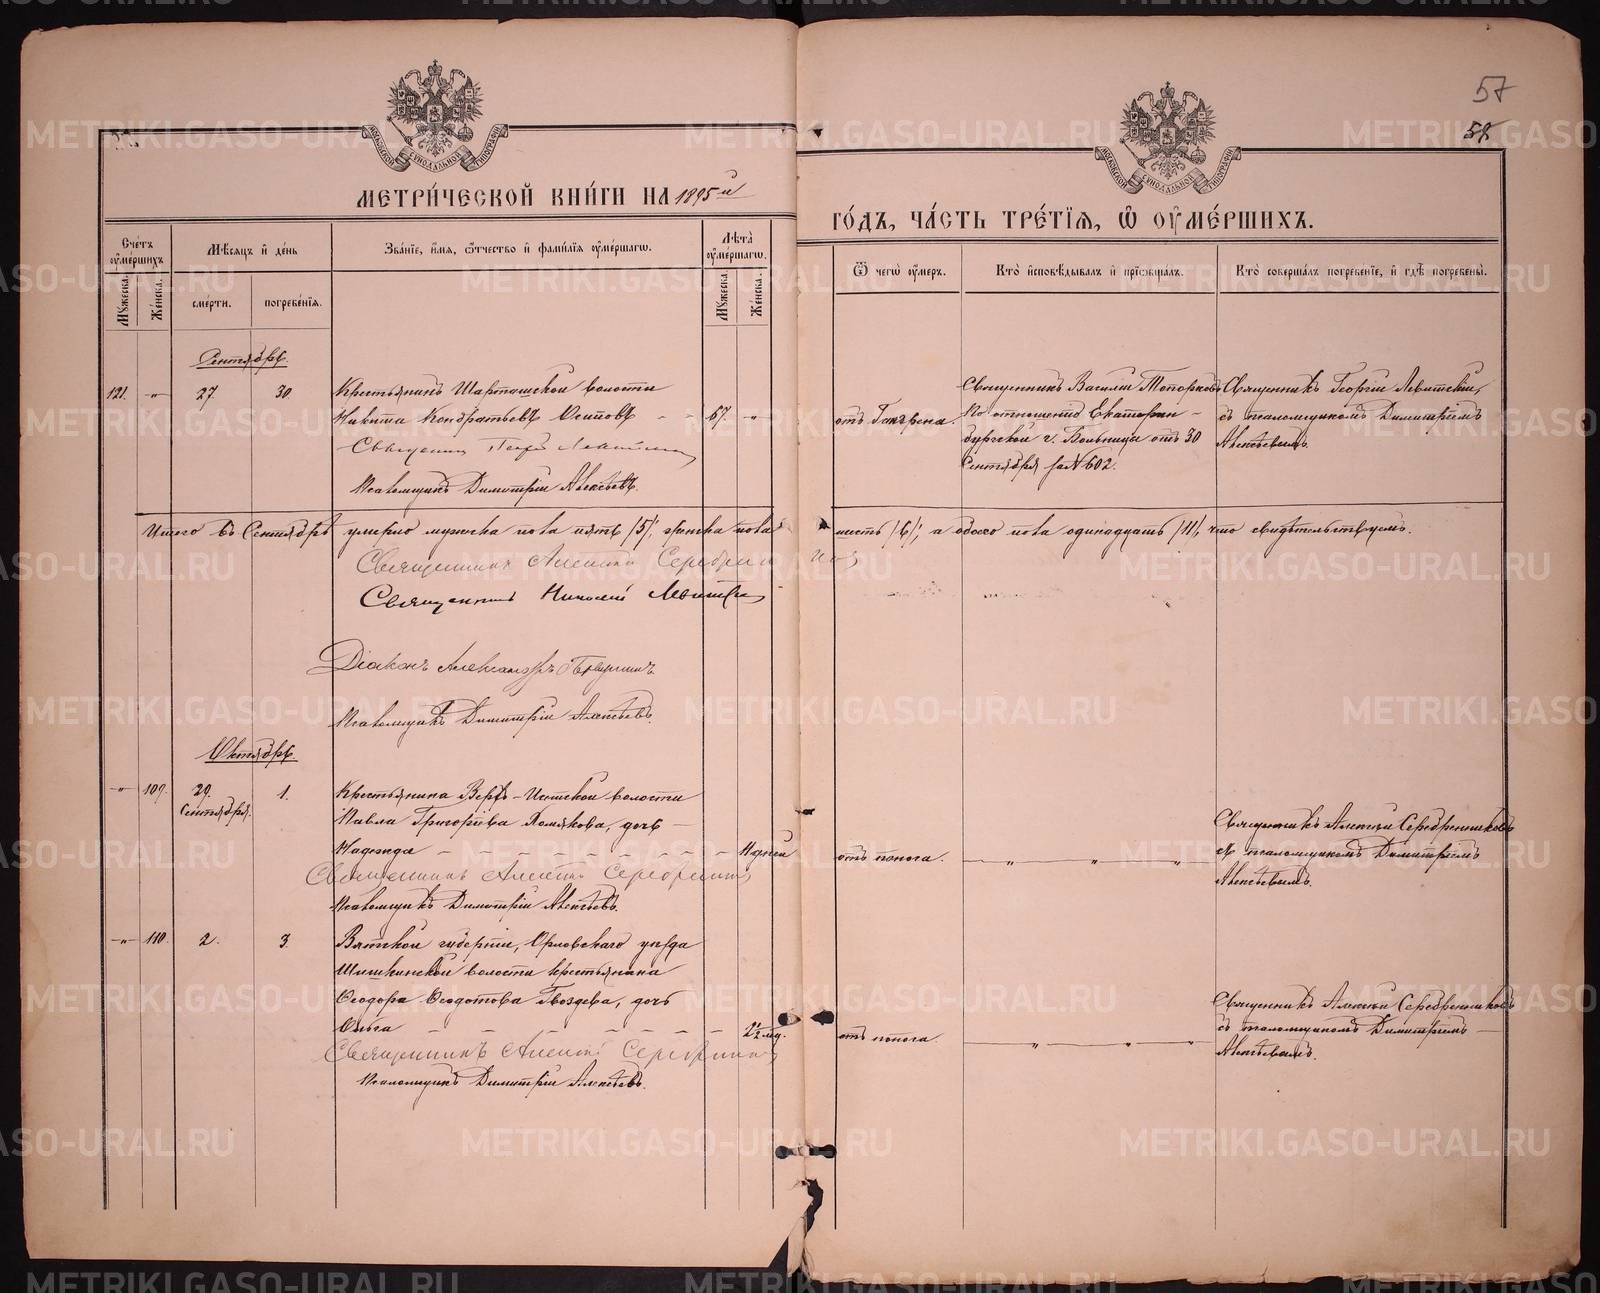 57
58
МЕТРИ́ЧЕСКОЙ КНИ́ГИ НА 1895 й
ГО́ДЪ, ЧА́СТЬ ТРЕ́ТІѦ, Ѿ ОУ҆МЕ́РШИХЪ.
Сче́тъ оу҆ме́ршихъ
Мѣ́сяцъ и҆ де́нь
Зва́нїе, и҆́мя, ѻ҆́тчество и҆ фами́лїя оу҆ме́ршагѡ.
Лѣ́та оу҆ме́ршагѡ.
Ѿ чегѡ̀ оу҆́меръ.
Кто̀ и҆сповѣ́дывалъ и҆ прїѡбща́лъ.
Кто̀ соверша́лъ погребе́нїе, и҆ гдѣ̀ погребены̀.
Му́жеска.
Же́нска.
сме́рти.
погребе́нїя.
Му́жеска.
Же́нска.
Сентябрь.
121. -"- 27. 30. Крестьянинъ Шарташской волости
Никита Кондратьевъ Осиповъ - - 67. "
Священник Георгій Левитскій
Псаломщикъ Димитрій Алексѣевъ.
отъ Гангрены.
Священникъ Василій Топорковъ
По отношенію Екатерин-
бургской г. Больницы отъ 30
Сентября за № 602.
Священникъ Георгій Левитскій,
съ псаломщикомъ Димитріемъ
Алексѣевымъ.
Итого въ Сентябрѣ умерло мужска пола пять /5/, женска пола шесть /6/, а обоего пола одинадцать /11/, что свидѣтельствуемъ.
Священникъ Алексій Серебренниковъ
Священникъ Николай Левитскій
Діаконъ Александръ
Псаломщикъ Димитрій Алексѣевъ.
Октябрь.
-"- 109. 29. Сентября. 1. Крестьянина Верхъ-Исетской волости
Павла Григорьева Полякова, дочь -
Надежда - - - - - - - - 11 дней
Священникъ Алексій Серебренниковъ
Псаломщикъ Димитрій Алексѣевъ.
отъ поноса. " " "
Священникъ Алексій Серебренниковъ
съ псаломщикомъ Димитріемъ
Алексѣевымъ.
-"- 110. 2. 3. Вятской губерніи, Орловскаго уѣзда
волости крестьянина
Ѳеодора Ѳеодотова Гвоздева, дочь
Ольга - - - - - - - 2 1/2 мѣ.
Священникъ Алексій Серебренниковъ
Псаломщикъ Димитрій Алексѣевъ.
отъ поноса. " " "
Священникъ Алексій Серебренниковъ
съ псаломщикомъ Димитріемъ -
Алексѣевымъ.